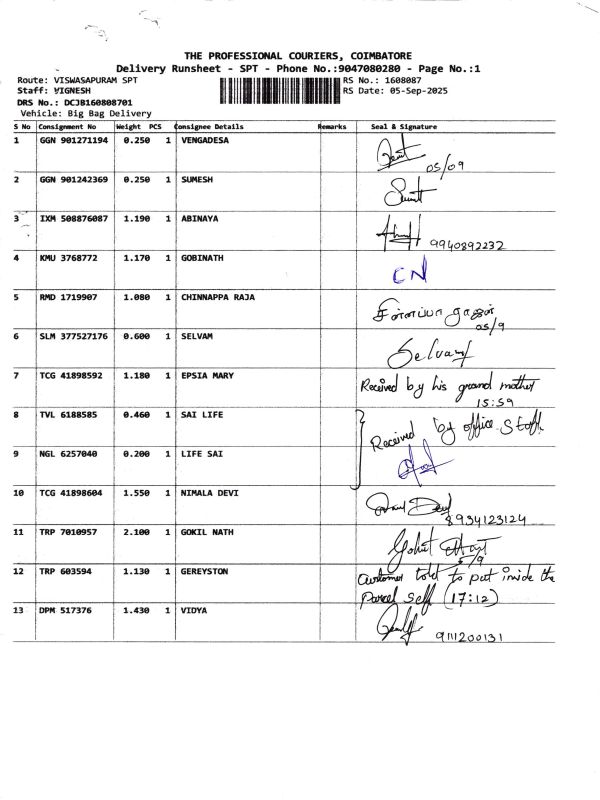 THE PROFESSIONAL COURIERS, COIMBATORE
Delivery Runsheet - SPT - Phone No.:9047080280 - Page No.:1
Route: VISWASAPURAM SPT RS No.: 1608087
Staff: VIGNESH RS Date: 05-Sep-2025
DRS No.: DCJB160808701
Vehicle: Big Bag Delivery
S No Consignment No Weight PCS Consignee Details Remarks Seal & Signature
1 GGN 901271194 0.250 1 VENGADESA
05/09
2 GGN 901242369 0.250 1 SUMESH
3 IXM 508876087 1.190 1 ABINAYA
9940892232
4 KMU 3768772 1.170 1 GOBINATH CN
5 RMD 1719907 1.080 1 CHINNAPPA RAJA
05/9
6 SLM 377527176 0.600 1 SELVAM Selvam
7 TCG 41898592 1.180 1 EPSIA MARY Received by his grand mother
15:59
8 TVL 6188585 0.460 1 SAI LIFE Received by office staff
9 NGL 6257040 0.200 1 LIFE SAI
10 TCG 41898604 1.550 1 NIMALA DEVI
8934123124
11 TRP 7010957 2.100 1 GOKIL NATH
5/9
12 TRP 603594 1.130 1 GEREYSTON Customer told to put inside the
Parcel self (17:12)
13 DPM 517376 1.430 1 VIDYA
9111200131